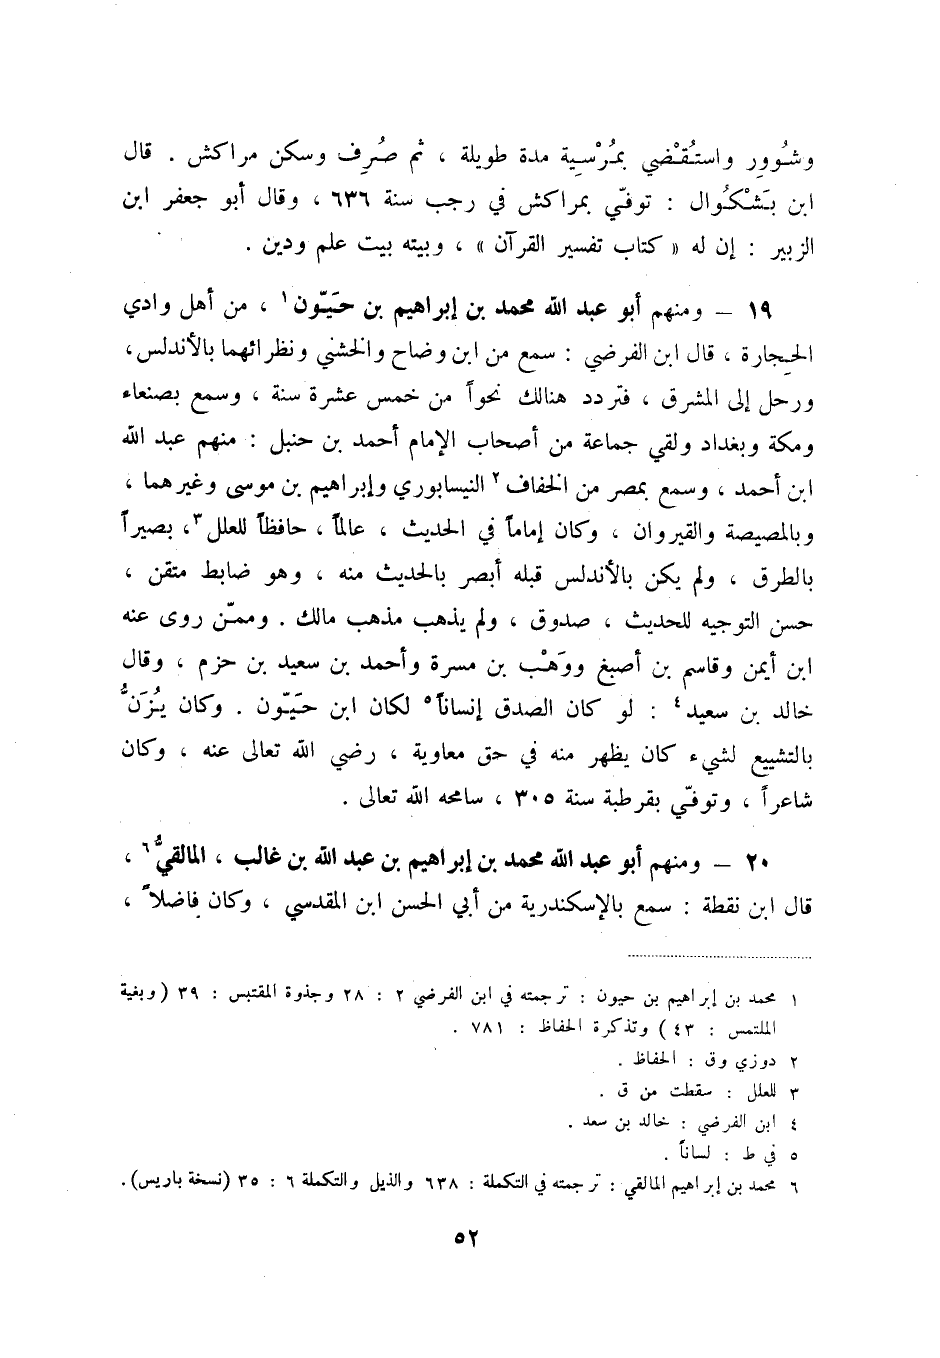 وشُوور واستُقْضي بمُرْسية مدة طويلة ، ثم صُرِف وسكن مراكش . قال
ابن بَشْكُوال : توفّي بمراكش في رجب سنة ٦٣٦ ، وقال أبو جعفر ابن
الزبير : إن له « كتاب تفسير القرآن » ، وبيته بيت علم ودين .
١٩ – ومنهم أبو عبد الله محمد بن إبراهيم بن حَيّون ١ ، من أهل وادي
الحِجارة ، قال ابن الفرضي : سمع من ابن وضاح والخشني ونظرائهما بالأندلس،
ورحل إلى المشرق ، فتردد هنالك نحواً من خمس عشرة سنة ، وسمع بصنعاء
ومكة وبغداد ولقي جماعة من أصحاب الإمام أحمد بن حنبل : منهم عبد الله
ابن أحمد ، وسمع بمصر من الخفاف ٢ النيسابوري وإبراهيم بن موسى وغيرهما ،
وبالمصيصة والقيروان ، وكان إماماً في الحديث ، عالماً ، حافظاً للعلل ٣، بصيراً
بالطرق ، ولم يكن بالأندلس قبله أبصر بالحديث منه ، وهو ضابط متقن ،
حسن التوجيه للحديث ، صدوق ، ولم يذهب مذهب مالك . وممّن روى عنه
ابن أيمن وقاسم بن أصبغ ووَهْب بن مسرة وأحمد بن سعيد بن حزم ، وقال
خالد بن سعيد ٤ : لو كان الصدق إنساناً ٥ لكان ابن حَيّون . وكان يُزَنُّ
بالتشييع لشيء كان يظهر منه في حق معاوية ، رضي الله تعالى عنه ، وكان
شاعراً ، وتوفّي بقرطبة سنة ٣٠٥ ، سامحه الله تعالى .
٢٠ – ومنهم أبو عبد الله محمد بن إبراهيم بن عبد الله بن غالب ، المالقيُّ ٦ ،
قال ابن نقطة : سمع بالإسكندرية من أبي الحسن ابن المقدسي ، وكان فاضلاً ،
١ محمد بن إبراهيم بن حيون : ترجمته في ابن الفرضي ٢ : ٢٨ وجذوة المقتبس : ٣٩ (وبغية
الملتمس : ٤٣) وتذكرة الحفاظ : ٧٨١ .
٢ دوزي وق : الحفاظ .
٣ للعلل : سقطت من ق .
٤ ابن الفرضي : خالد بن سعد .
٥ في ط : لساناً .
٦ محمد بن إبراهيم المالقي : ترجمته في التكملة : ٦٣٨ والذيل والتكملة ٦ : ٣٥ (نسخة باريس).
٥٢